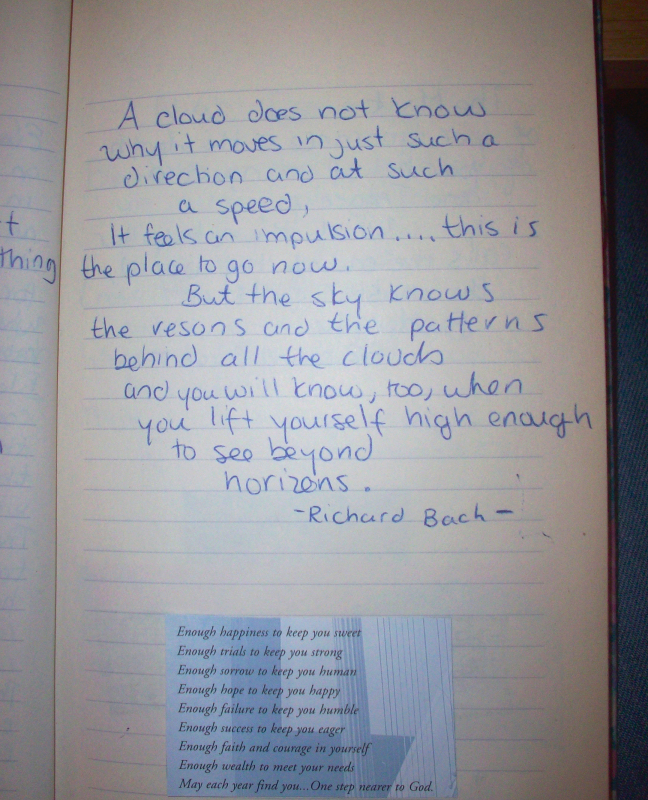 A cloud does not know
why it moves in just such a
direction and at such
a speed,
It feels an impulsion.... this is
the place to go now.
But the sky knows
the resons and the patterns
behind all the clouds
and you will know, too, when
you lift yourself high enough
to see beyond
horizons.
-Richard Bach-
t
thing
Enough happiness to keep you sweet
Enough trials to keep you strong
Enough sorrow to keep you human
Enough hope to keep you happy
Enough failure to keep you humble
Enough success to keep you eager
Enough faith and courage in yourself
Enough wealth to meet your needs
May each year find you...One step nearer to God.